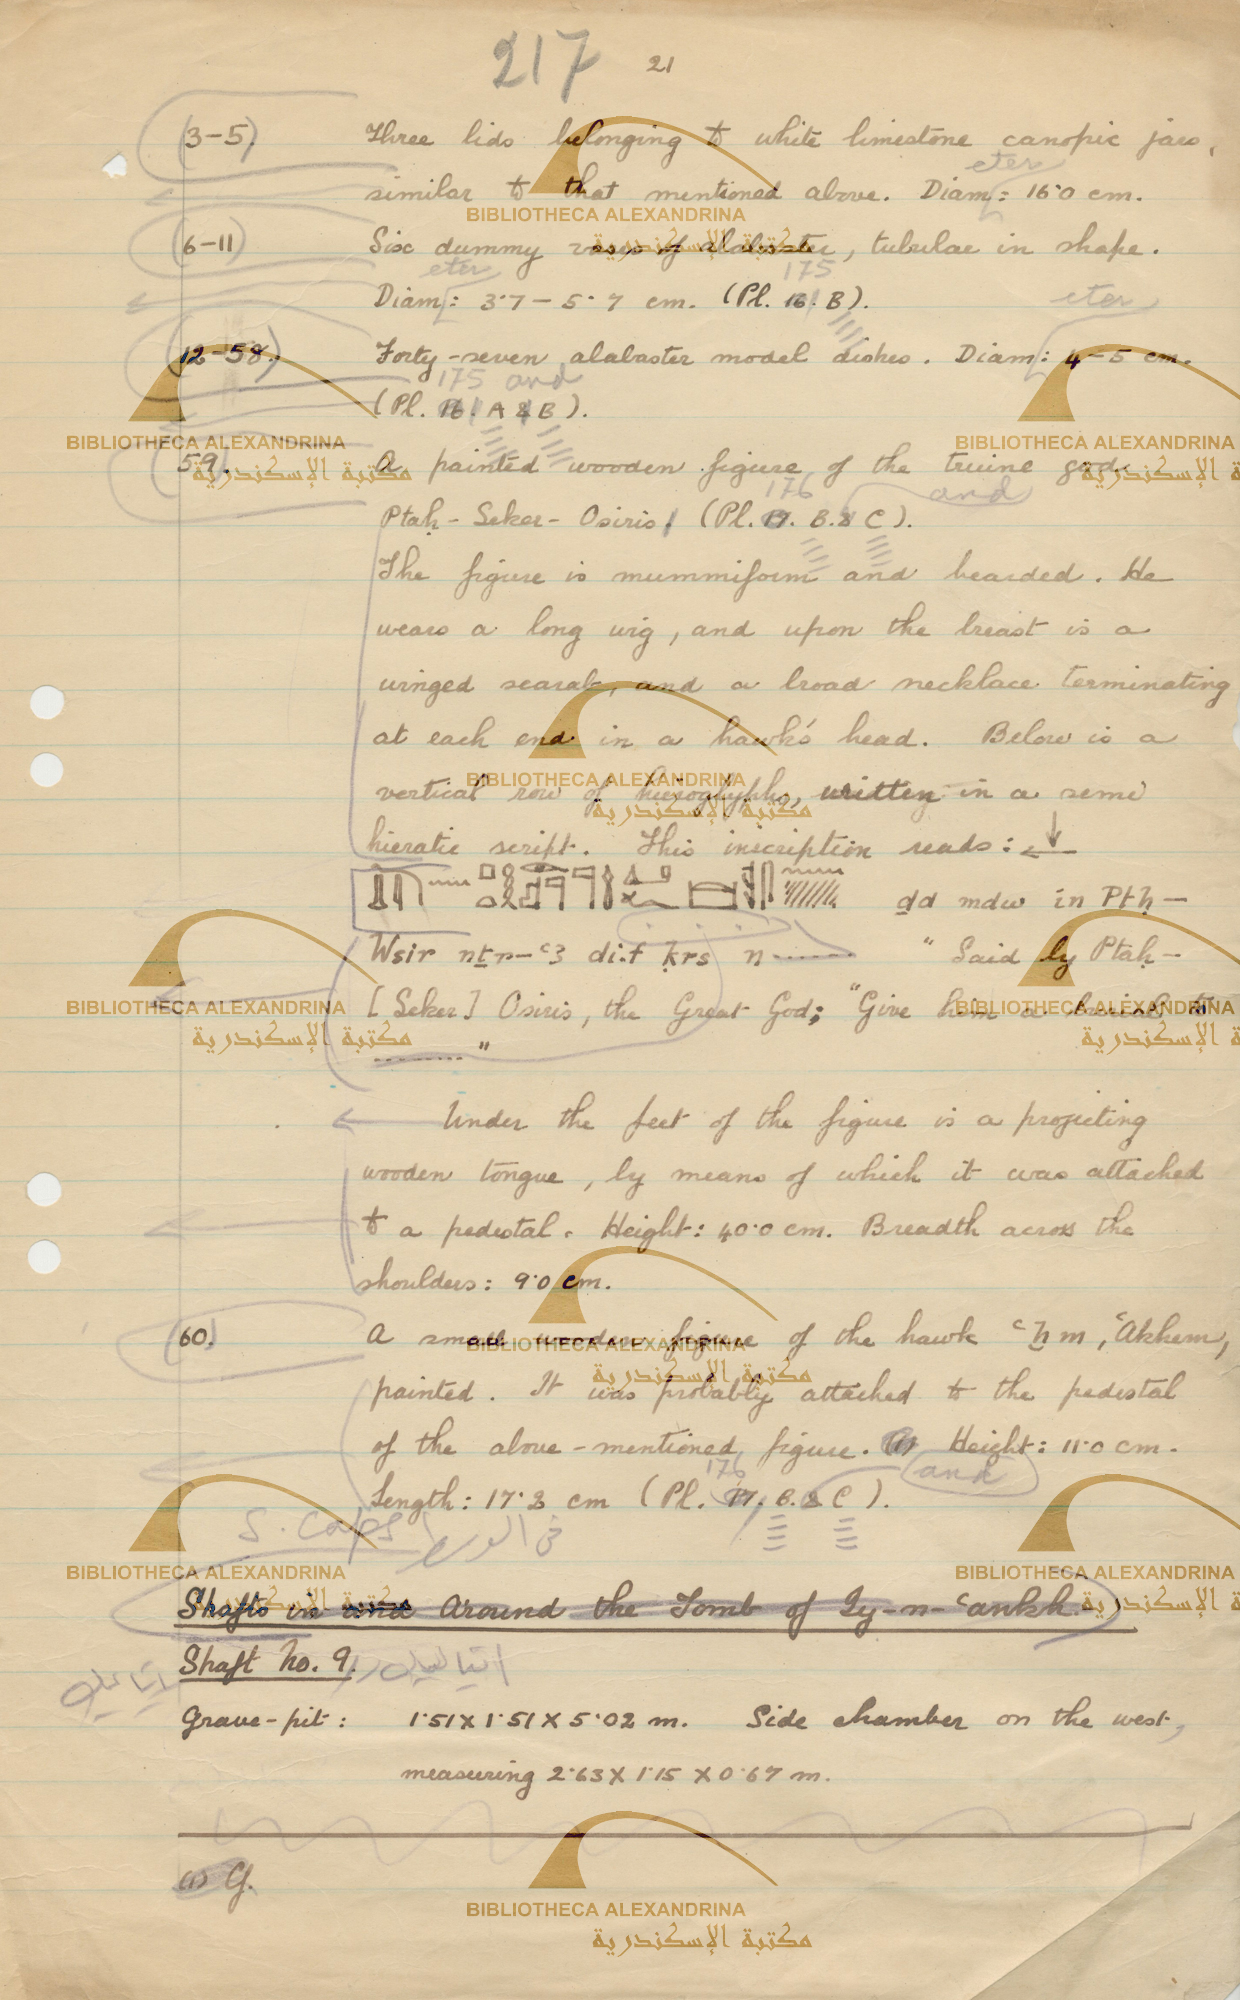 217 21
(3-5) Three lids belonging to white limestone canopic jars,
eter
similar to that mentioned above. Diam: 16·0 cm.
(6-11) Six dummy vases of alabaster, tubular in shape.
eter 175
Diam: 3·7 - 5·7 cm. (Pl. 16. B).
eter
(12-58) Forty-seven alabaster model dishes. Diam: 4-5 cm.
175 and
(Pl. 16. A & B).
59. A painted wooden figure of the triune god
176 and
Ptaḥ-Seker-Osiris. (Pl. 17. B. & C).
The figure is mummiform and bearded. He
wears a long wig, and upon the breast is a
winged scarab, and a broad necklace terminating
at each end in a hawk's head. Below is a
vertical row of hieroglyphs, written in a semi
hieratic script. This inscription reads:
ḏd mdw in Ptḥ-
Wsir nṯr-ꜥ3 di·f ḳrs n ........ "Said by Ptaḥ-
[Seker] Osiris, the Great God; "Give him a burial to
........ "
Under the feet of the figure is a projecting
wooden tongue, by means of which it was attached
to a pedestal. Height: 40·0 cm. Breadth across the
shoulders: 9·0 cm.
60. A small wooden figure of the hawk ꜥẖm, ꜥAkhem,
painted. It was probably attached to the pedestal
of the above-mentioned figure. Height: 11·0 cm.
176 and
Length: 17·3 cm (Pl. 17. B. & C).
S. Caps في الوسط
Shafts in and Around the Tomb of Iy-n-ꜥankh
Shaft No. 9.
Grave-pit: 1·51 X 1·51 X 5·02 m. Side chamber on the west,
measuring 2·63 X 1·15 X 0·67 m.
(1) G.
BIBLIOTHECA ALEXANDRINA
مكتبة الإسكندرية